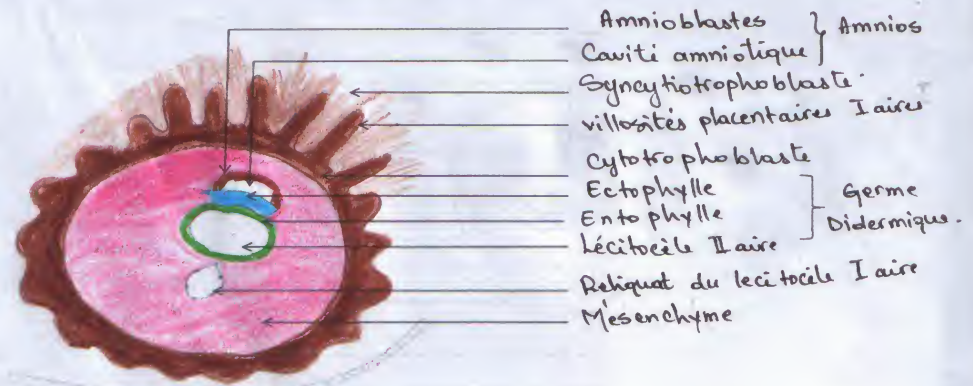 Amnioblastes
Cavité amniotique
Amnios
Syncytiotrophoblaste.
villosités placentaires I aires
Cytotrophoblaste
Ectophylle
Entophylle
Lécitocèle II aire
Germe
Didermique.
Reliquat du lecitocèle I aire
Mésenchyme